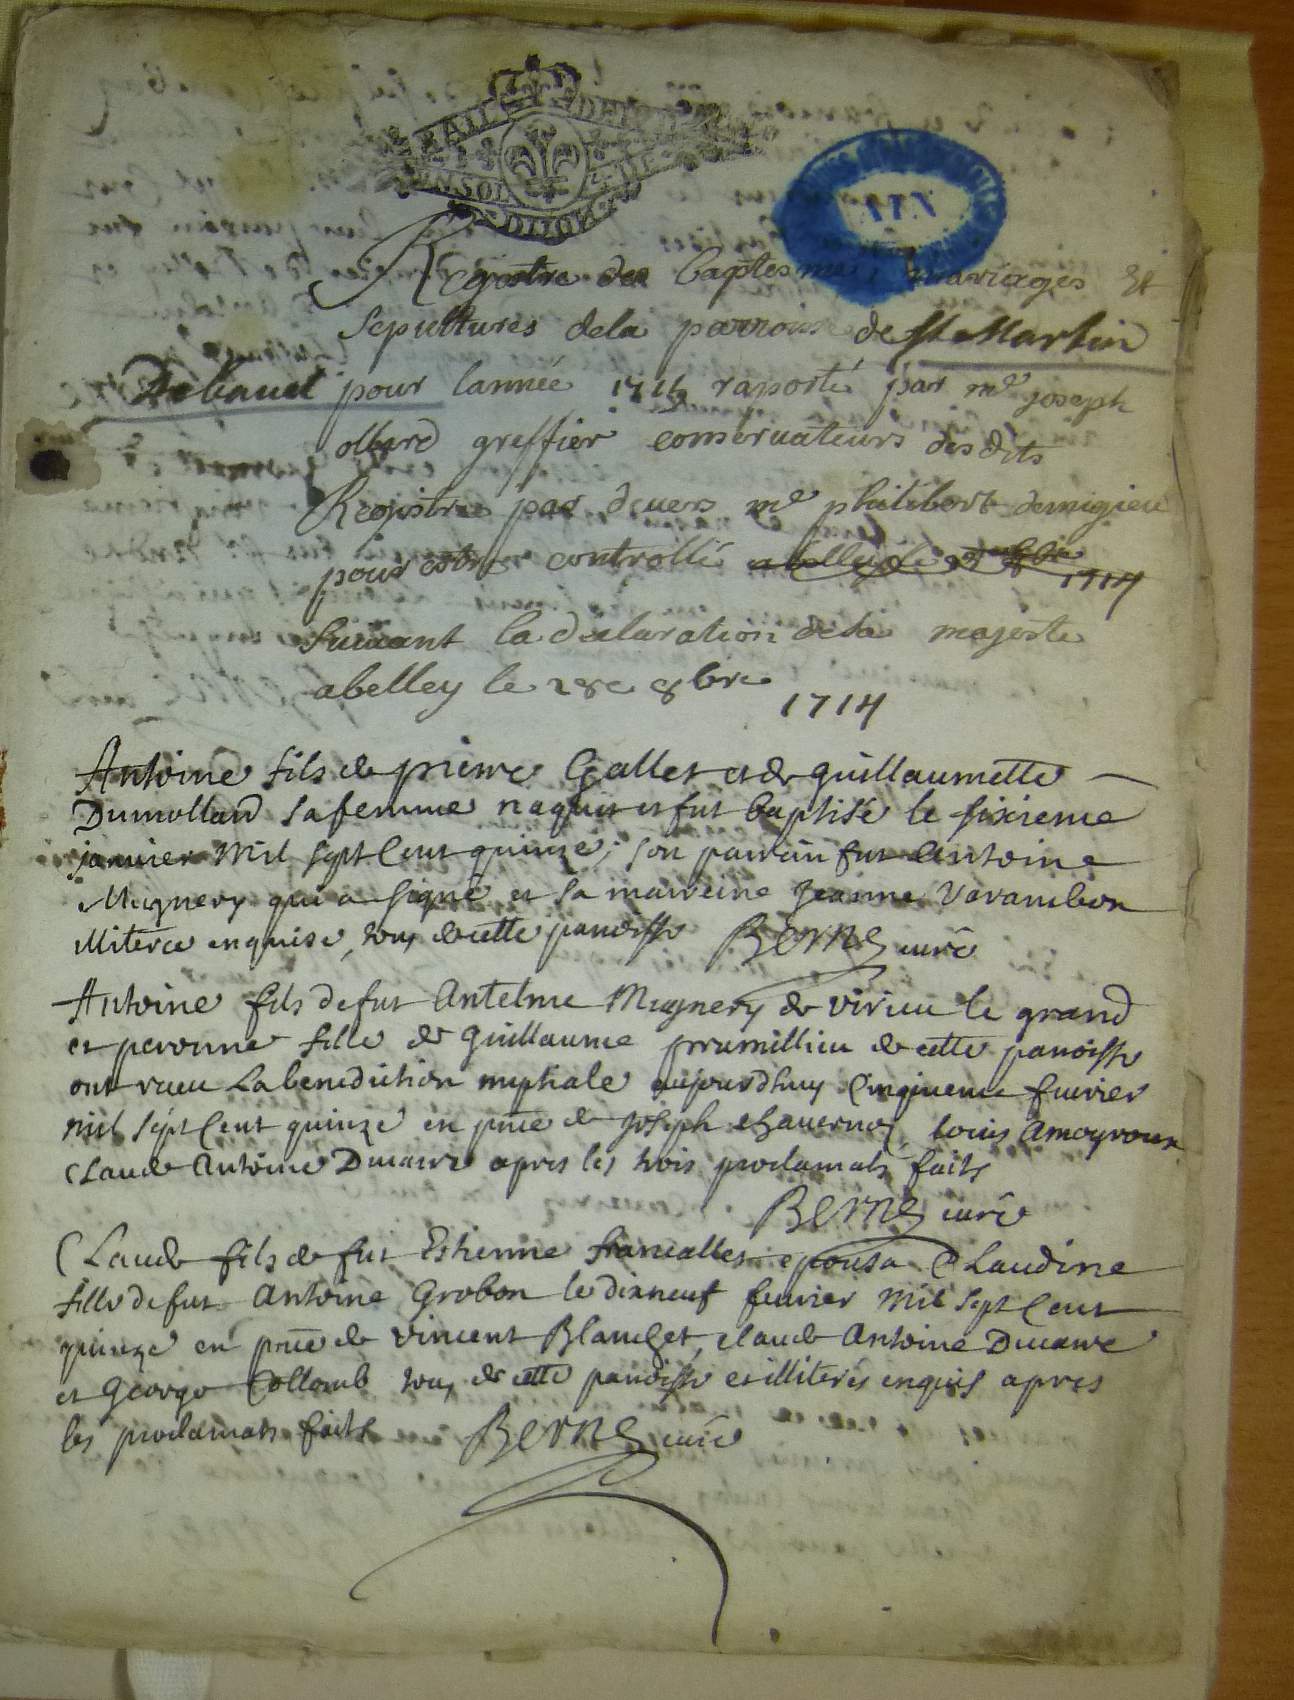 DIJON
AIN
Registre des baptesmes, mariages Et
sepultures dela parroisse de St Martin
De bauel pour lannée raporté par me joseph
greffier conservateurs desdits
Registre par devers me philibert demigieu
pour estre controllé
1714
suivant la declaration de sa majeste
abelley le 28e 8bre 1714
Antoine fils de pierre Gallet et de guillaumette
Dumollard sa femme naquit et fut baptisé le sixieme
janvier Mil sept Cent quinze; son parrain fut Antoine
Mugnery qui a signé et sa marreine Jeanne Varambon
illiterée enquise, tous de cette parroisse Berne curé
Antoine fils de fut Antelme Mugnery de virieu le grand
et peronne fille de guillaume prumillieu de cette paroisse
ont receu La benediction nuptiale aujourdhuy Cinquieme fevrier
mil sept Cent quinze en pñce de Joseph chavernoz, louis Amoyroux
Claude Antoine Ducarre apres les trois proclamats faits
Berne curé
Claude fils de fut Estienne francallet epousa Claudine
fille de fut Antoine Grobon le dixneuf fevrier Mil sept Cent
quinze en pñce de vincent Blanchet, claude Antoine Ducarre
et George Collomb tous de cette paroisse et illiterés enquis apres
les proclamats faits Berne curé